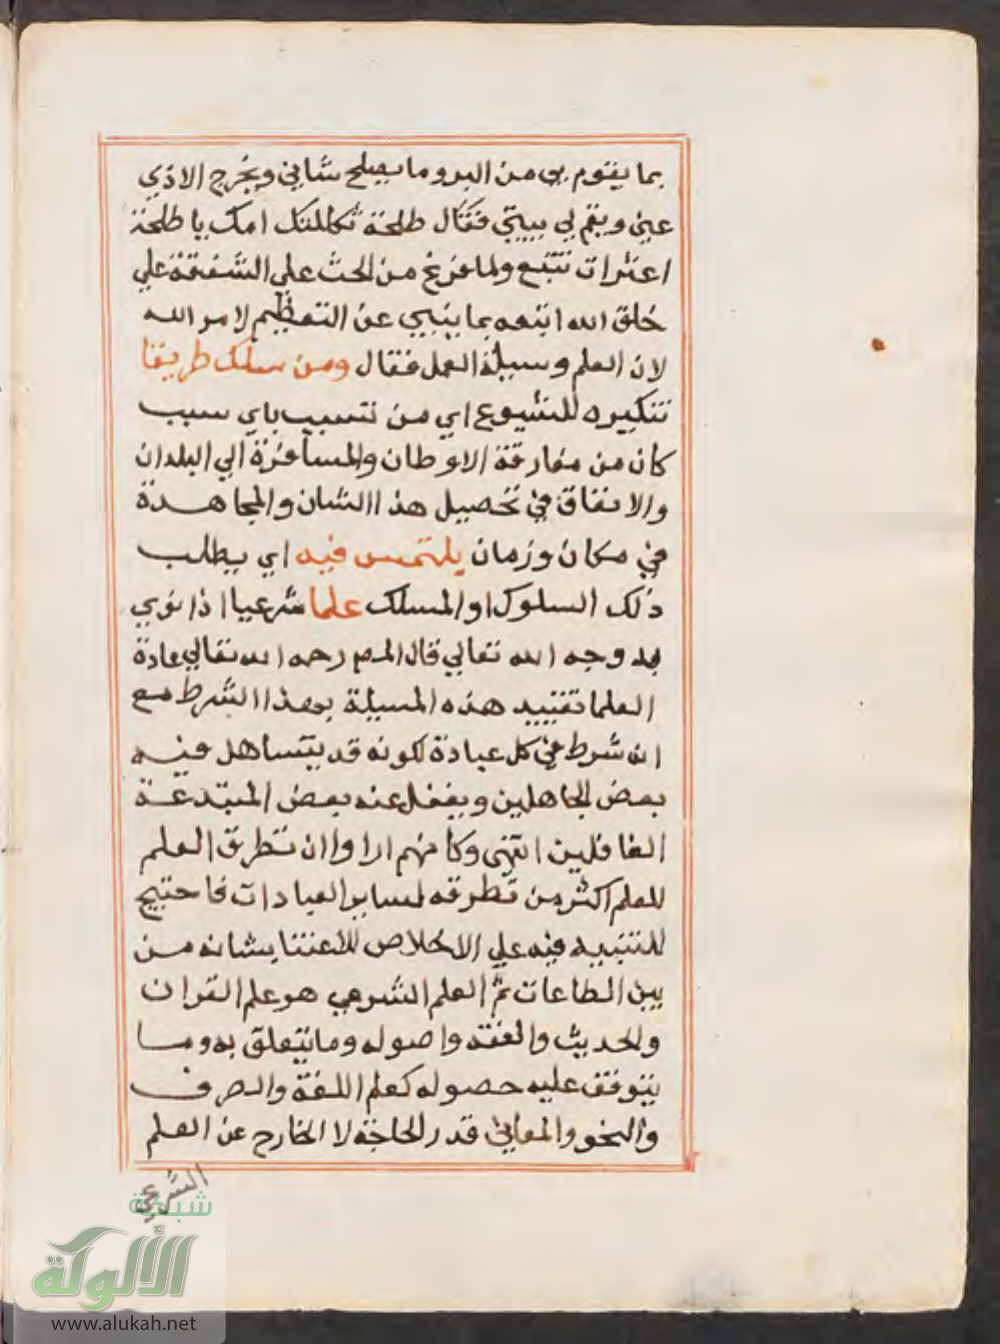 بما يقوم بي من البر وما يصلح شاني ويخرج الاذي
عني ويقم لي بيتي فقال طلحة ثكلتك امك يا طلحة
اعثرات تتبع ولما فرغ من الحث علي الشفقة علي
خلق الله اتبعه بما ينبي عن التعظيم لامر الله
لان العلم وسيلة العمل فقال ومن سلك طريقا
تنكيره للشيوع اي من تسبب باي سبب
كان من مفارقة الاوطان والمسافرة الي البلدان
والانفاق في تحصيل هذا الشان والمجاهدة
في مكان وزمان يلتمس فيه اي يطلب
ذلك السلوك او المسلك علما شرعيا اذا نوي
به وجه الله تعالي قال المص رحمه الله تعالي عادة
العلما تقييد هذه المسيلة بهذا الشرط مع
انه شرط في كل عبادة لكونه قد يتساهل فيه
بعض الجاهلين ويغفل عنه بعض المبتدعة
الغافلين انتهى وكانهم اراوا ان تطرق العلم
للعلم اكثر من تطرقه لساير العبادات فاحتيج
للتنبيه فيه علي الاخلاص للاعتنا بشانه من
بين الطاعات ثم العلم الشرعي هو علم القران
والحديث والفقه واصوله وما يتعلق به وما
يتوقف عليه حصوله كعلم اللغة والصرف
والنحو والمعاني قدر الحاجة لا الخارج عن العلم
الشرعي
شبكة
الألوكة
www.alukah.net